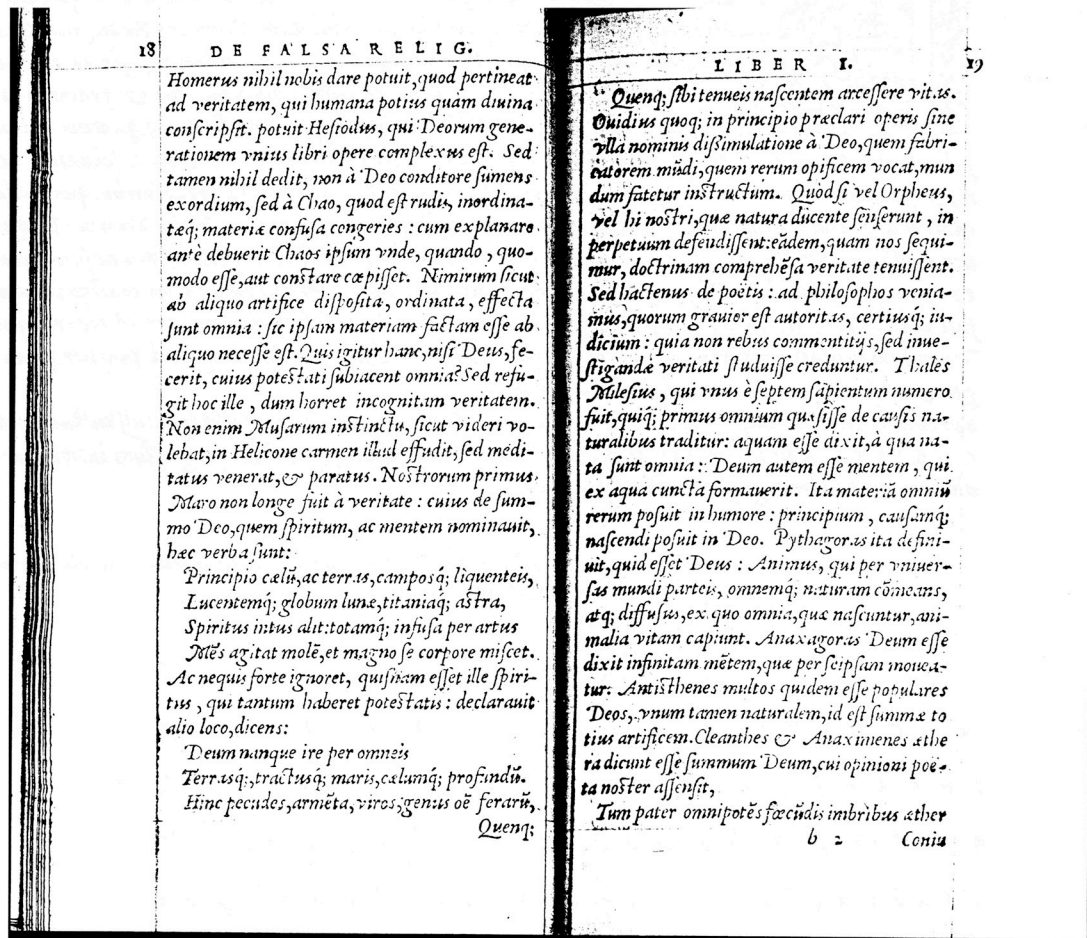 18 DE FALSA RELIG.
Homerus nihil nobis dare potuit, quod pertineat
ad veritatem, qui humana potius quàm diuina
conſcripſit. potuit Heſiodus, qui Deorum gene-
rationem vnius libri opere complexus eſt. Sed
tamen nihil dedit, non à Deo conditore ſumens
exordium, ſed à Chao, quod eſt rudis, inordina-
tæq; materiæ confuſa congeries : cum explanare
antè debuerit Chaos ipſum vnde, quando, quo-
modo eſſe, aut conſtare cœpiſſet. Nimirum ſicut
ab aliquo artifice diſpoſita, ordinata, effecta
ſunt omnia : ſic ipſam materiam factam eſſe ab
aliquo neceſſe eſt. Quis igitur hanc, niſi Deus, fe-
cerit, cuius poteſtati ſubiacent omnia? Sed refu-
git hoc ille, dum horret incognitam veritatem.
Non enim Muſarum inſtinctu, ſicut videri vo-
lebat, in Helicone carmen illud effudit, ſed medi-
tatus venerat, & paratus. Noſtrorum primus
Maro non longe fuit à veritate : cuius de ſum-
mo Deo, quem ſpiritum, ac mentem nominauit,
hæc verba ſunt:
Principio cælũ, ac terras, campoſq́; liquenteis,
Lucentemq́; globum lunæ, titaniaq́; aſtra,
Spiritus intus alit: totamq́; infuſa per artus
Mẽs agitat molẽ, et magno ſe corpore miſcet.
Ac nequis forte ignoret, quiſnam eſſet ille ſpiri-
tus, qui tantum haberet poteſtatis : declarauit
alio loco, dicens:
Deum nanque ire per omneis
Terraſq́;, tractuſq́; maris, cælumq́; profundũ.
Hinc pecudes, armẽta, viros, genus oẽ ferarũ,
Quenq;
LIBER I. 19
Quenq; ſibi tenueis naſcentem arceſſere vitas.
Ouidius quoq; in principio præclari operis ſine
vlla nominis diſſimulatione à Deo, quem fabri-
catorem mũdi, quem rerum opificem vocat, mun
dum fatetur inſtructum. Quòd ſi vel Orpheus,
vel hi noſtri, quæ natura ducente ſenſerunt, in
perpetuum defendiſſent: eãdem, quam nos ſequi-
mur, doctrinam comprehẽſa veritate tenuiſſent.
Sed hactenus de poëtis : ad philoſophos venia-
mus, quorum grauior eſt autoritas, certiusq́; iu-
dicium : quia non rebus commentitijs, ſed inue-
ſtigandæ veritati ſtuduiſſe creduntur. Thales
Mileſius, qui vnus è ſeptem ſapientum numero
fuit, quiq́; primus omnium quæſiſſe de cauſis na-
turalibus traditur: aquam eſſe dixit, à qua na-
ta ſunt omnia : Deum autem eſſe mentem, qui
ex aqua cuncta formauerit. Ita materiã omniũ
rerum poſuit in humore : principium, cauſamq́;
naſcendi poſuit in Deo. Pythagoras ita defini-
uit, quid eſſet Deus : Animus, qui per vniuer-
ſas mundi parteis, omnemq́; naturam cõmeans,
atq; diffuſus, ex quo omnia, quæ naſcuntur, ani-
malia vitam capiunt. Anaxagoras Deum eſſe
dixit infinitam mẽtem, quæ per ſeipſam mouea-
tur. Antiſthenes multos quidem eſſe populares
Deos, vnum tamen naturalem, id eſt ſummæ to
tius artificem. Cleanthes & Anaximenes æthe
ra dicunt eſſe ſummum Deum, cui opinioni poë-
ta noſter aſſenſit,
Tum pater omnipotẽs fœcũdis imbribus æther
b 2 Coniu